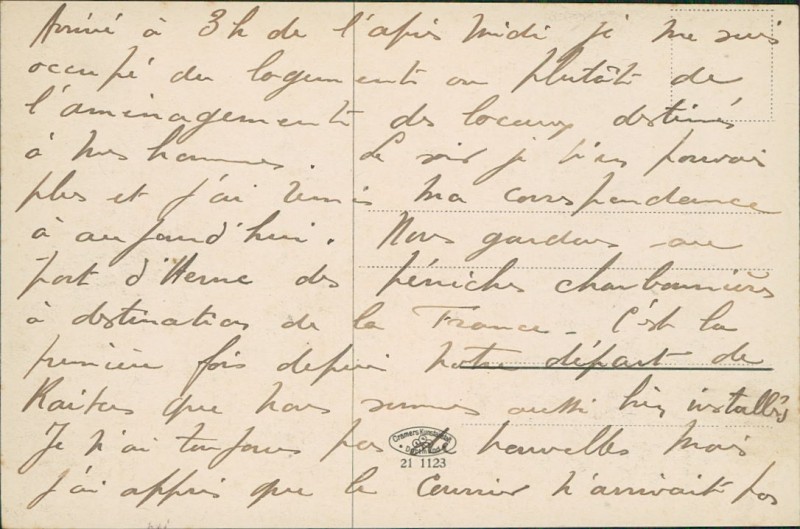 Arrivé à 3h de l'après midi je me suis
occupé du logement ou plutôt de
l'aménagement des locaux destinés
à mes hommes. Le soir je n'en pouvais
plus et j'ai remis ma correspondance
à aujourd'hui. Nous gardons au
port d'Herne des péniches charbonnières
à destination de la France - C'est la
première fois depuis notre départ de
que nous sommes aussi bien installés
Je n'ai toujours pas de nouvelles mais
j'ai appris que le Courrier n'arrivait pas
Cramers Kunstanstalt
Dortmund
21 1123